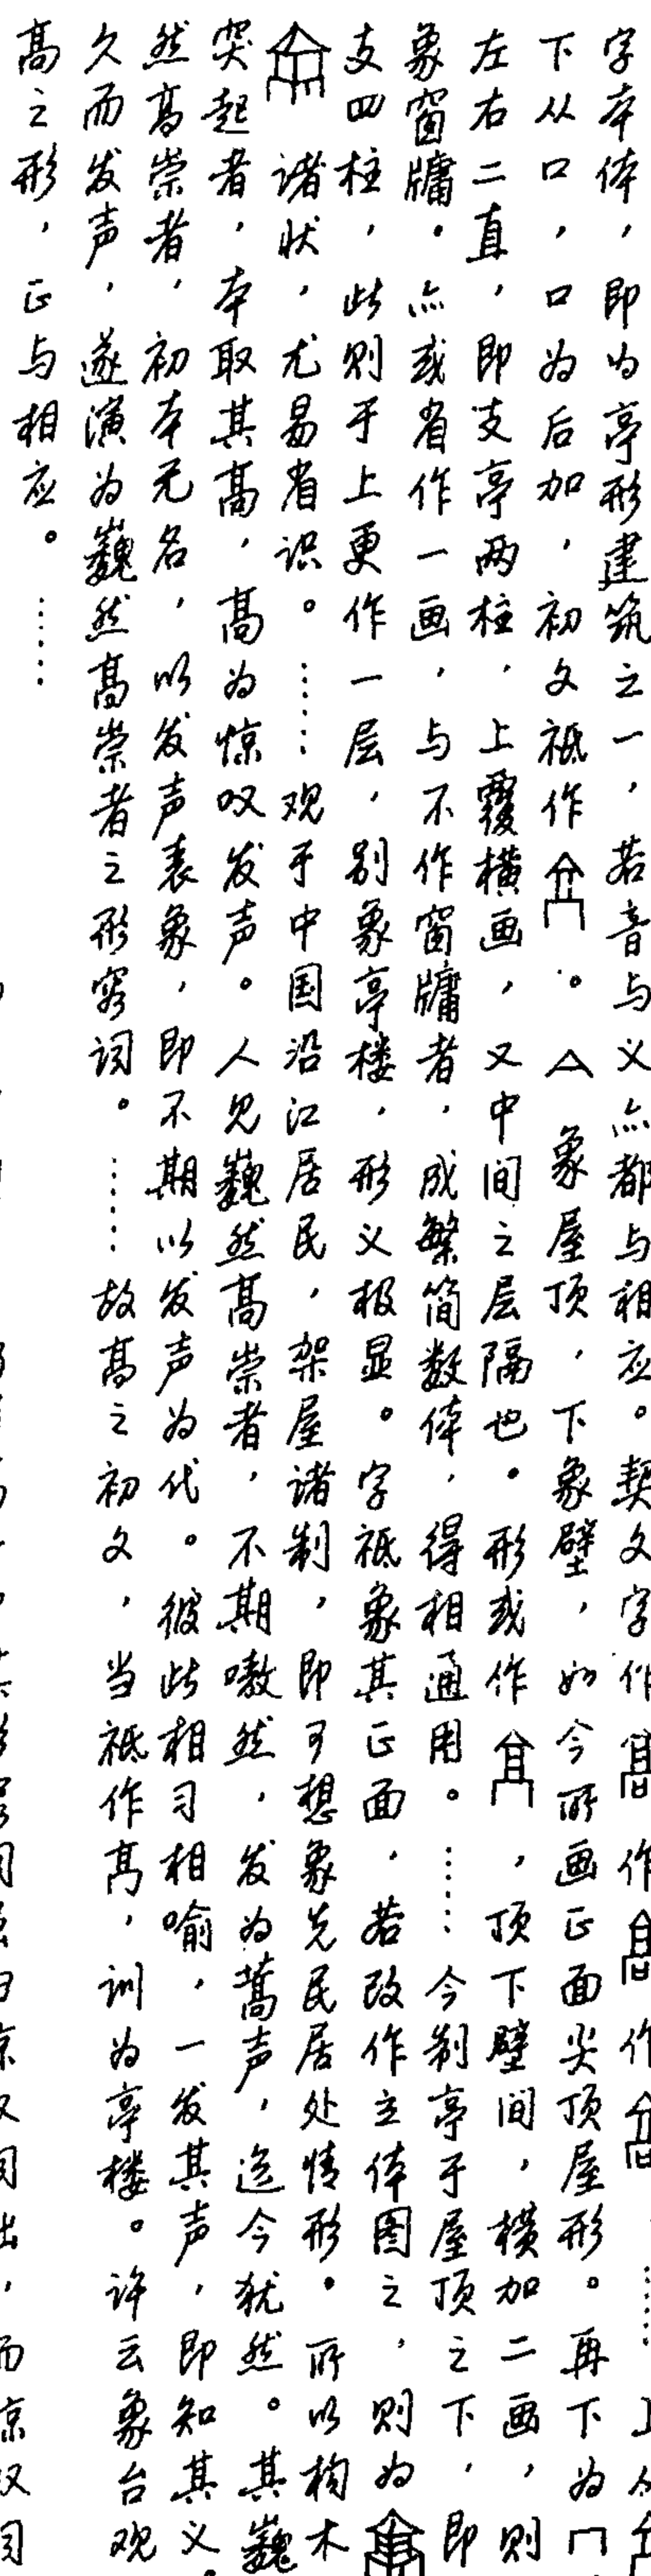 字本体，即为亭形建筑之一，若音与义亦都与相应。契文字作 作 作 ……上从
下从口，口为后加，初文祗作 。 象屋顶，下象壁，如今所画正面尖顶屋形。再下为冂
左右二直，即支亭两柱，上覆横画，又中间之层隔也。形或作 ，顶下壁间，横加二画，则
象窗牖。亦或省作一画，与不作窗牖者，成繁简数体，得相通用。……今制亭于屋顶之下，即
支四柱，此则于上更作一层，别象亭楼，形义极显。字祗象其正面，若改作立体图之，则为
诸状，尤易省识。……观于中国沿江居民，架屋诸制，即可想象先民居处情形。所以构木
突起者，本取其高，高为惊叹发声。人见巍然高崇者，不期嗷然，发为蒿声，迄今犹然。其巍
然高崇者，初本无名，以发声表象，即不期以发声为代。彼此相习相喻，一发其声，即知其义。
久而发声，遂演为巍然高崇者之形容词。……故高之初文，当祗作髙，训为亭楼。许云象台观
高之形，正与相应。……